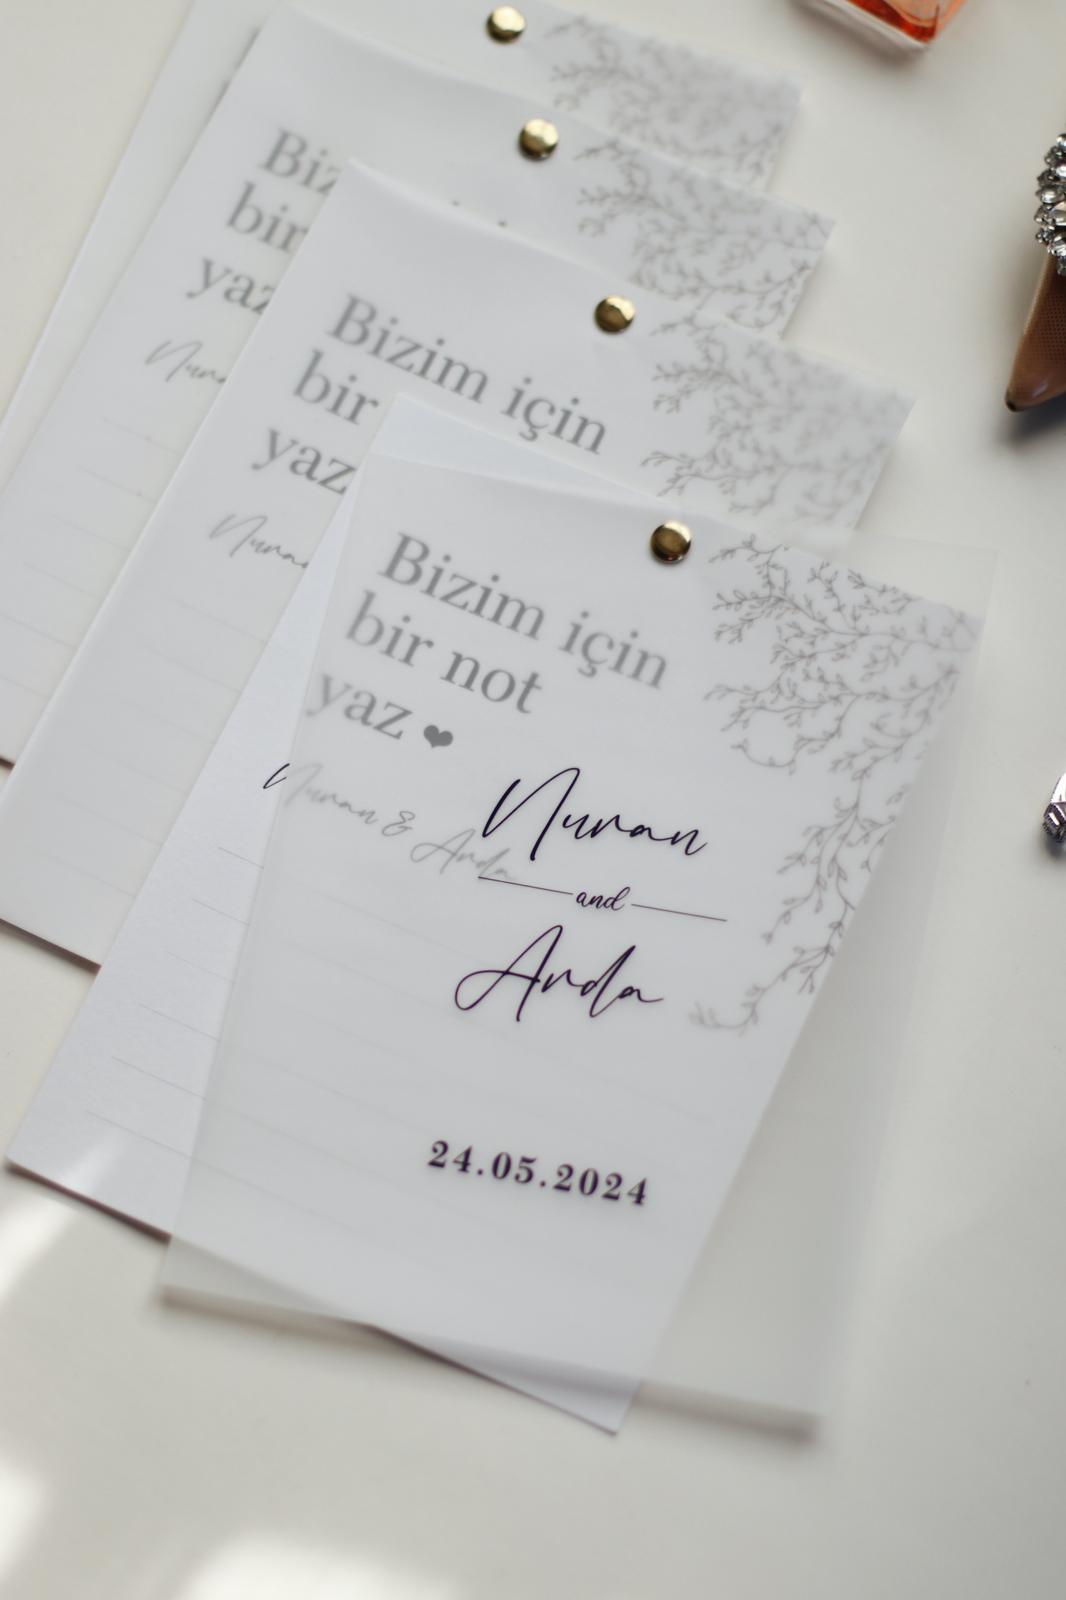 Biz
bir
yaz
Bizim için
bir
yaz
Bizim için
bir not
yaz ❤
Nuran & Arda
Nuran
and
Arda
24.05.2024